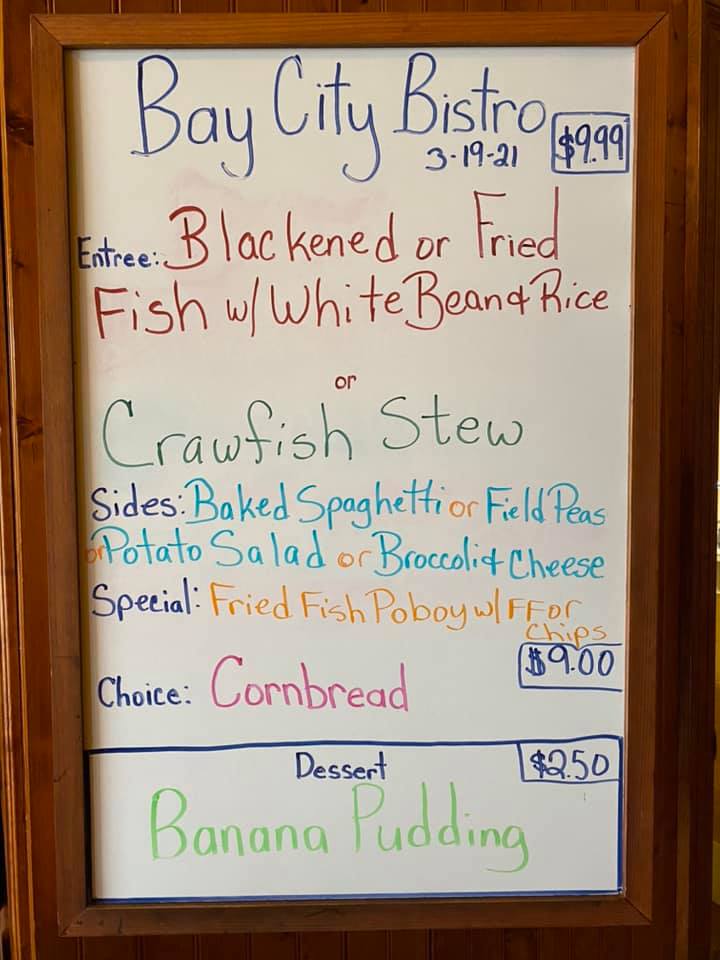 Bay City Bistro
3-19-21 $9.99
Entree: Blackened or Fried
Fish w/ White Bean & Rice
or
Crawfish Stew
Sides: Baked Spaghetti or Field Peas
or Potato Salad or Broccoli & Cheese
Special: Fried Fish Poboy w/ FF or
Chips
$9.00
Choice: Cornbread
Dessert $2.50
Banana Pudding